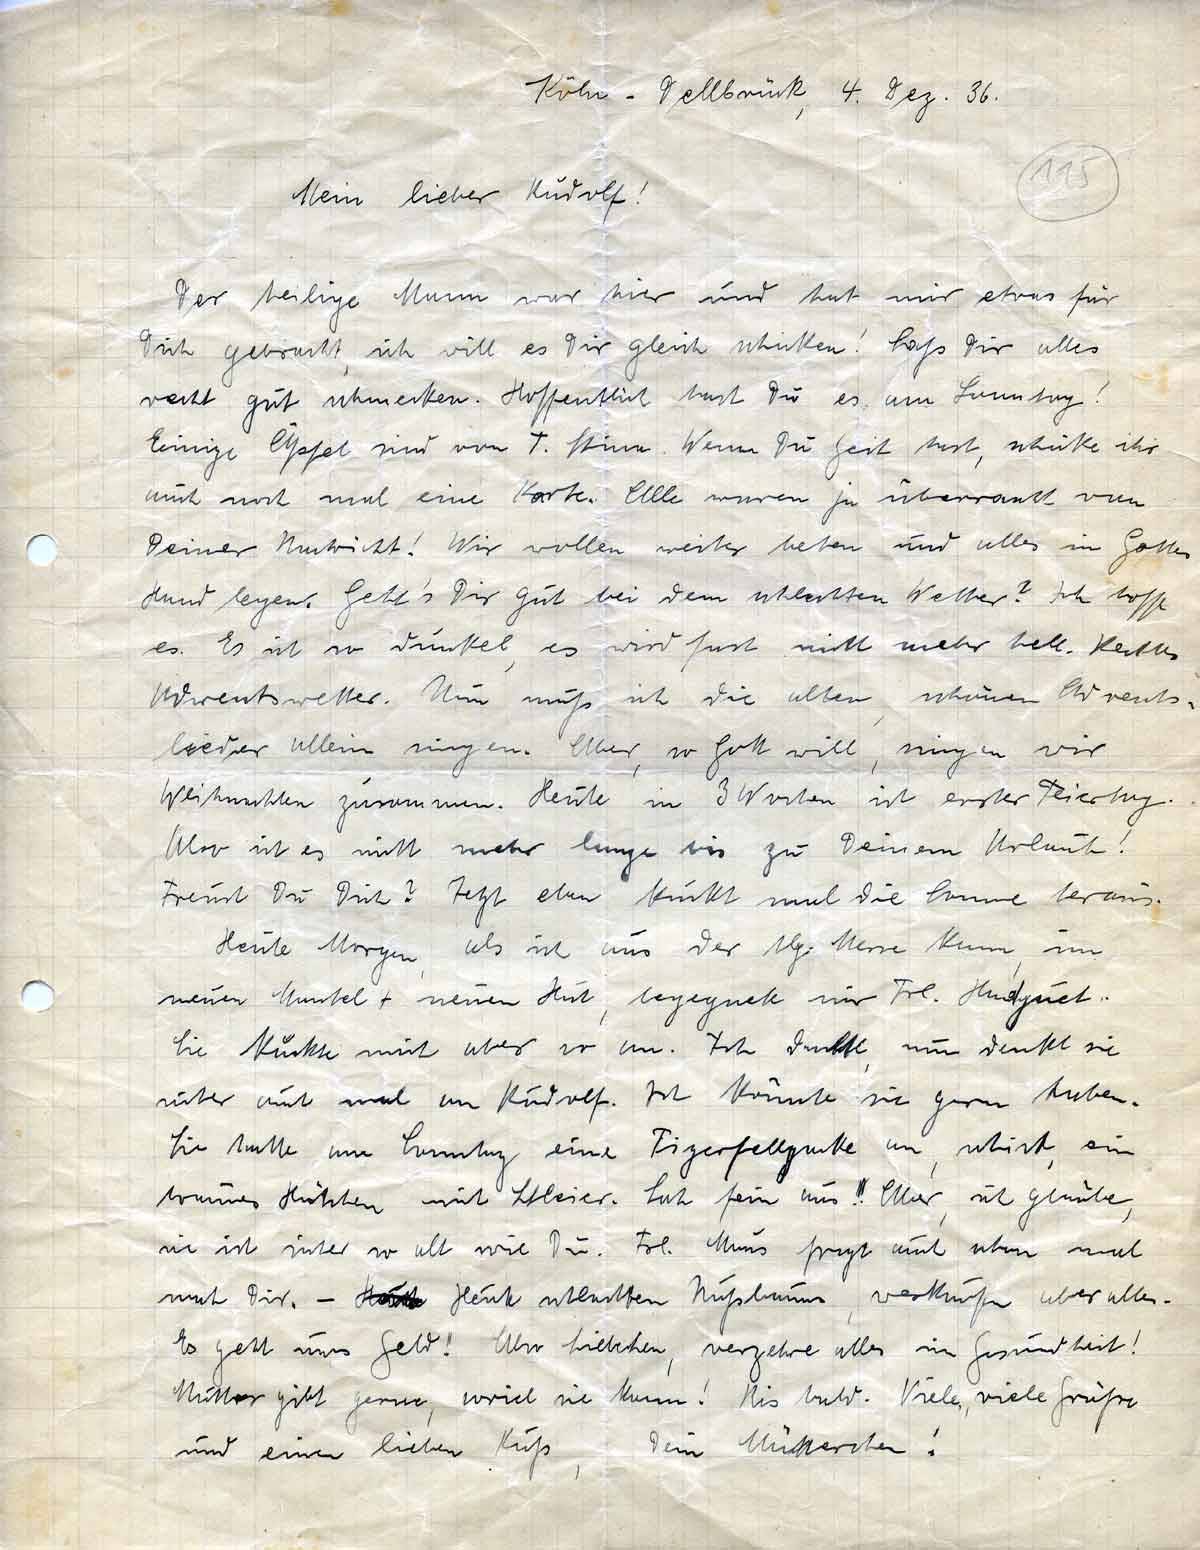 Köln - Dellbrück, 4. Dez. 36.
115
Mein lieber Rudolf!
Der heilige Mann war hier und hat mir etwas für
Dich gebracht, ich will es Dir gleich schicken! Laß Dir alles
recht gut schmecken. Hoffentlich hast Du es am Sonntag!
Einige Äpfel sind von T. Stina. Wenn Du Zeit hast, schicke ihr
auch noch mal eine Karte. Alle waren ja überrascht von
Deiner Nachricht! Wir wollen weiter beten und alles in Gottes
Hand legen. Geht's Dir gut bei dem schlechten Wetter? Ich hoffe
es. Es ist so dunkel, es wird fast nicht mehr hell. Rechtes
Adventswetter. Nun muß ich die alten, schönen Advents-
lieder allein singen. Aber, so Gott will, singen wir
Weihnachten zusammen. Heute in 3 Wochen ist erster Feiertag.
Also ist es nicht mehr lange bis zu Deinem Urlaub!
Freust Du Dich? Jetzt eben kuckt mal die Sonne heraus.
Heute Morgen, als ich aus der hlg. Messe kam, im
neuen Mantel + neuen Hut, begegnete mir Frl.
Sie kuckte mich aber so an. Ich dachte, nun denkt sie
sicher auch mal an Rudolf. Ich könnte sie gern haben.
Sie hatte am Sonntag eine Tigerfelljacke an, schick, ein
braunes Hütchen mit Schleier. Sah fein aus!! Aber, ich glaube,
sie ist sicher so alt wie Du. Frl. Maus fragt auch schon mal
nach Dir. – Heute schlachten Nußbaums, verkaufen aber alles.
Es geht ums Geld! Also Liebchen, verzehre alles in Gesundheit!
Mutter gibt gerne, soviel sie kann! Bis bald. Viele, viele Grüße
und einen lieben Kuß, Dein Mütterchen!